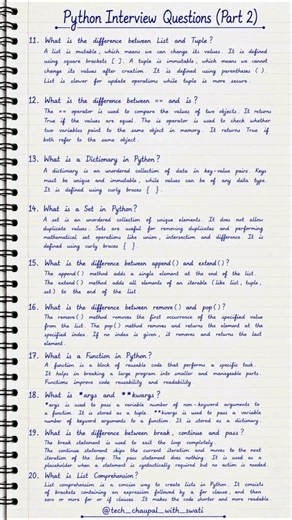 Python Interview Questions (Part 2)
11. What is the difference between List and Tuple?
A list is mutable, which means we can change its values. It is defined
using square brackets [ ]. A tuple is immutable, which means we cannot
change its values after creation. It is defined using parentheses ( ).
List is slower for update operations while tuple is more secure.
12. What is the difference between == and is?
The == operator is used to compare the values of two objects. It returns
True if the values are equal. The is operator is used to check whether
two variables point to the same object in memory. It returns True if
both refer to the same object.
13. What is a Dictionary in Python?
A dictionary is an unordered collection of data in key-value pairs. Keys
must be unique and immutable, while values can be of any data type.
It is defined using curly braces { }.
14. What is a Set in Python?
A set is an unordered collection of unique elements. It does not allow
duplicate values. Sets are useful for removing duplicates and performing
mathematical set operations like union, intersection and difference. It is
defined using curly braces { }.
15. What is the difference between append() and extend()?
The append() method adds a single element at the end of the list.
The extend() method adds all elements of an iterable (like list, tuple,
set) to the end of the list.
16. What is the difference between remove() and pop()?
The remove() method removes the first occurrence of the specified value
from the list. The pop() method removes and returns the element at the
specified index. If no index is given, it removes and returns the last
element.
17. What is a Function in Python?
A function is a block of reusable code that performs a specific task.
It helps in breaking a large program into smaller and manageable parts.
Functions improve code reusability and readability.
18. What is *args and **kwargs?
*args is used to pass a variable number of non-keyword arguments to
a function. It is stored as a tuple. **kwargs is used to pass a variable
number of keyword arguments to a function. It is stored as a dictionary.
19. What is the difference between break, continue and pass?
The break statement is used to exit the loop completely.
The continue statement skips the current iteration and moves to the next
iteration of the loop. The pass statement does nothing. It is used as a
placeholder when a statement is syntactically required but no action is needed.
20. What is List Comprehension?
List comprehension is a concise way to create lists in Python. It consists
of brackets containing an expression followed by a for clause, and then
zero or more for or if clauses. It makes the code shorter and more readable
@tech_chaupal_with_swati